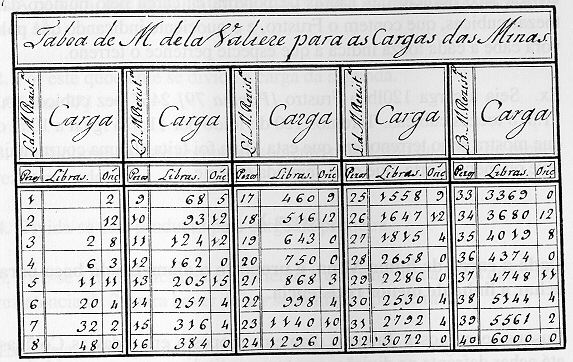 Taboa de M. de la Valiere para as Cargas das Minas.
La. M. Rezist.ª Carga La. M. Rezist.ª Carga La. M. Rezist.ª Carga La. M. Rezist.ª Carga La. M. Rezist.ª Carga
Pezos Libras. Onc Pezos Libras. Onc Pezos Libras. Onc Pezos Libras. Onc Pezos Libras. Onc
1 2 9 68 5 17 460 9 25 1558 9 33 3369 0
2 12 10 93 12 18 516 12 26 1647 12 34 3680 12
3 2 8 11 124 12 19 643 0 27 1815 4 35 4019 8
4 6 3 12 162 0 20 750 0 28 2658 0 36 4374 0
5 11 11 13 205 15 21 868 3 29 2286 0 37 4748 11
6 20 4 14 257 4 22 998 4 30 2530 4 38 5144 4
7 32 2 15 316 4 23 1140 10 31 2792 4 39 5561 2
8 48 0 16 384 0 24 1296 0 32 3072 0 40 6000 0